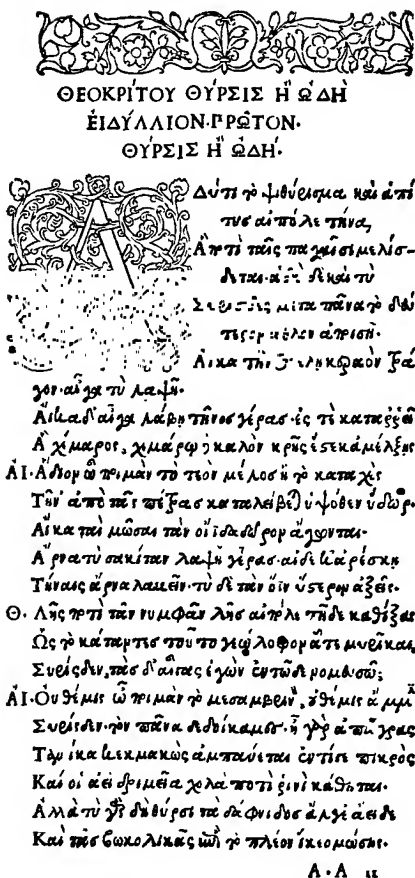 ΘΕΟΚΡΊΤΟΥ ΘΎΡΣΙΣ Ἢ ᾨΔῊ
ΕἸΔΎΛΛΙΟΝ·ΠΡΩ͂ΤΟΝ·
ΘΎΡΣΙΣ Ἢ ᾨΔΉ·
ΑΔύ τι τὸ ψιθύρισμα καὶ ἁ πί
τυς αἰπόλε τήνα,
Ἃ ποτὶ ταῖς παγαῖσι μελίσ-
δεται· ἁδὺ δὲ καὶ τὺ
Συρίσδες μετὰ πᾶνα τὸ δεύ
τερον ἆθλον ἀποισῇ·
Αἴκα τῆνος ἕλῃ κεραὸν τρά
γον· αἶγα τὺ λαψῇ·
Αἴκα δ' αἶγα λάβῃ τῆνος γέρας· ἐς τὲ καταρρεῖ
Ἁ χίμαρος· χιμάρῳ δὲ καλὸν κρῆς ἔστε κ' ἀμέλξῃς
ΑΙ· Ἅδιον ὦ ποιμὰν τὸ τεὸν μέλος ἢ τὸ καταχὲς
Τῆν' ἀπὸ τᾶς πέτρας καταλείβεται ὑψόθεν ὕδωρ·
Αἴκα ταὶ μῶσαι τὰν οἴϊδα δῶρον ἄγωνται·
Ἄρνα τὺ σακίταν λαψῇ γέρας· αἰ δέ κ' ἀρέσκῃ
Τήναις ἄρνα λαβεῖν· τὺ δὲ τὰν ὄϊν ὕστερον ἀξεῖς·
Θ· Λῇς ποτὶ τᾶν νυμφᾶν λῇς αἰπόλε τῇδε καθίξας
Ὡς τὸ κάταντες τοῦτο γεώλοφον ἅτε μυρῖκαι,
Συρίσδεν, τὰς δ' αἶγας ἐγὼν ἐν τῷδε νομευσῶ;
ΑΙ· Οὐ θέμις ὦ ποιμὰν τὸ μεσαμβρινὸν, οὐ θέμις ἄμμιν
Συρίσδεν· τὸν πᾶνα δεδοίκαμες· ἦ γὰρ ἀπ' ἄγρας
Τάνικα κεκμακὼς ἀμπαύεται ἐντί γε πικρὸς
Καί οἱ ἀεὶ δριμεῖα χολὰ ποτὶ ῥινὶ κάθηται·
Ἀλλὰ τὺ γὰρ δὴ θύρσι τὰ δάφνιδος ἄλγε' ἄειδε
Καὶ τᾶς βωκολικᾶς ἐπὶ τὸ πλέον ἵκεο μώσης·
Α·Α ιι